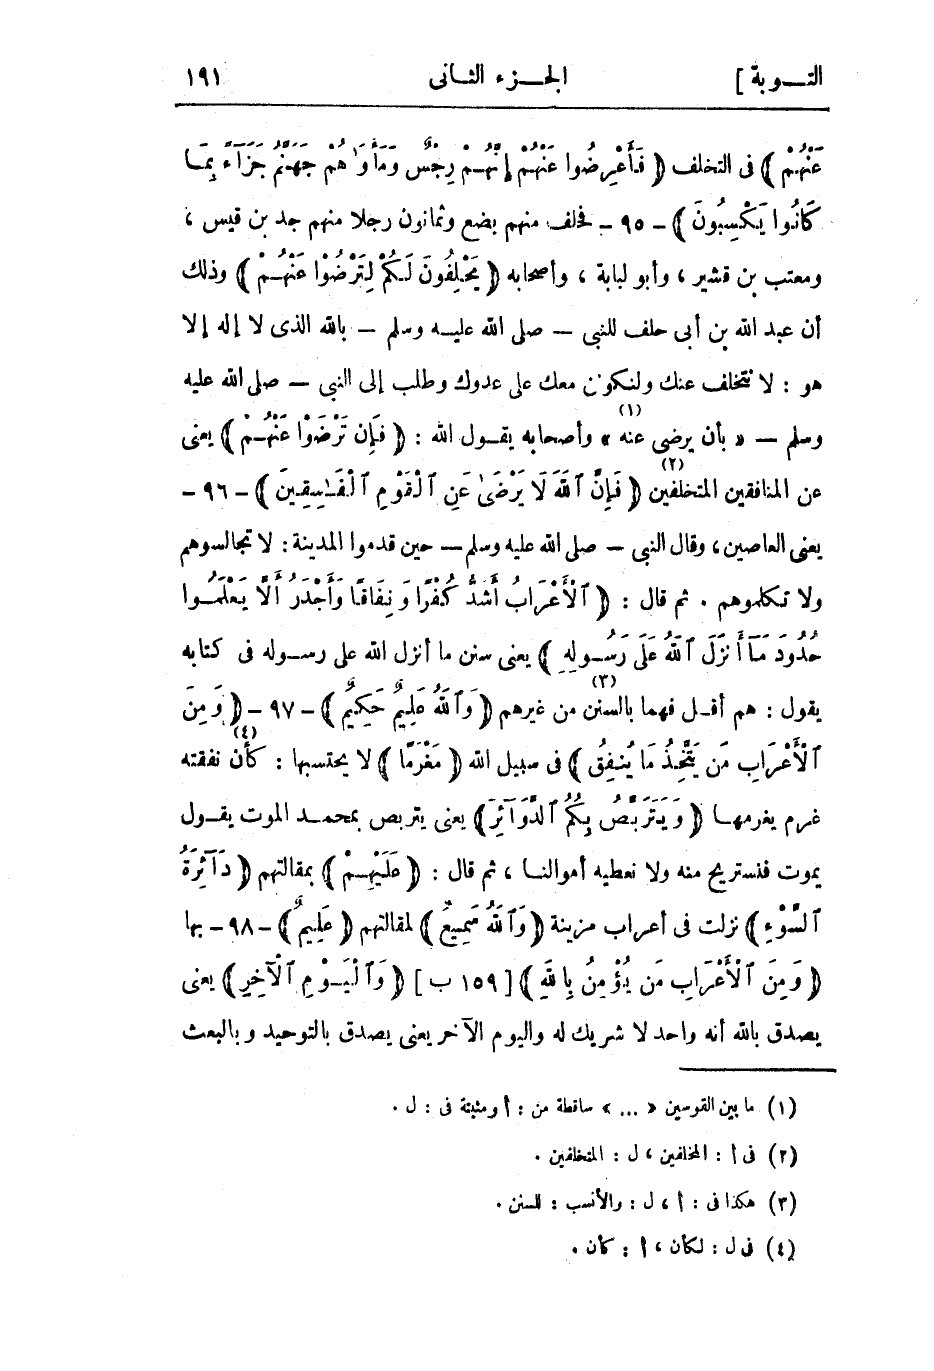 التـــوبة ]
الجـــزء الثـانى
١٩١
عَنْهُمْ ) فى التخلف ( فَأَعْرِضُوا عَنْهُمْ إِنَّهُـمْ رِجْسٌ وَمَأْوَاهُمْ جَهَنَّمُ جَزَآءً بِمَـا
كَانُوا يَكْسِبُونَ ) - ٩٥ - فخلف منهم بضع وثمانون رجلا منهم جد بن قيس ،
ومعتب بن قشير ، وأبو لبابة ، وأصحابه ( يَحْلِفُونَ لَـكُمْ لِتَرْضَوْا عَنْهُـمْ ) وذلك
أن عبد الله بن أبى حلف للنبى — صلى الله عليـه وسلم — بالله الذى لا إله إلا
هو : لا نتخلف عنك ولنكونن معك على عدوك وطلب إلى النبى — صلى الله عليه
وسلم — « بأن يرضى عنه » (١) وأصحابه يقـول الله : ( فَإِن تَرْضَوْا عَنْهُـمْ ) يعنى
عن المنافقين المتخلفين (٢) ( فَإِنَّ ٱللَّهَ لَا يَرْضَىٰ عَنِ ٱلْقَوْمِ ٱلْفَـٰسِقِـينَ ) - ٩٦ -
يعنى العاصين، وقال النبى — صلى الله عليه وسلم — حين قدموا المدينة : لا تجالسوهم
ولا تـكلموهم . ثم قال : ( ٱلْأَعْرَابُ أَشَدُّ كُفْرًا وَنِفَاقًا وَأَجْدَرُ أَلَّا يَعْلَمُـوا
حُدُودَ مَآ أَنزَلَ ٱللَّهُ عَلَىٰ رَسُـولِهِ ) يعنى سنن ما أنزل الله على رسـوله فى كتابه
يقول : هم أقـل فهما بالسنن (٣) من غيرهم ( وَٱللَّهُ عَلِيمٌ حَكِيمٌ ) - ٩٧ - ( وَمِنَ
ٱلْأَعْرَابِ مَن يَتَّخِذُ مَا يُنفِقُ ) فى سبيل الله ( مَغْرَمًا ) لا يحتسبها : كأن (٤) نفقته
غرم يغرمهـا ( وَيَتَرَبَّصُ بِكُمُ ٱلدَّوَآئِرَ ) يعنى يتربص بمحمـد الموت يقـول
يموت فنستريح منه ولا نعطيه أموالنـا ، ثم قال : ( عَلَيْهِـمْ ) بمقالتهم ( دَآئِرَةُ
ٱلسَّوْءِ ) نزلت فى أعراب مزينة ( وَٱللَّهُ سَمِيعٌ ) لمقالتهم ( عَلِيمٌ ) - ٩٨ - بها
( وَمِنَ ٱلْأَعْرَابِ مَن يُؤْمِنُ بِٱللَّهِ ) [ ١٥٩ ب ] ( وَٱلْيَـوْمِ ٱلْآخِرِ ) يعنى
يصدق بالله أنه واحد لا شريك له واليوم الآخر يعنى يصدق بالتوحيد وبالبعث
(١) ما بين القوسين « ... » ساقطة من : أ ومثبتة فى : ل .
(٢) فى أ : المخلفين ، ل : المتخلفين .
(٣) هكذا فى : أ ، ل : والأنسب : للسنن .
(٤) فى ل : لكأن ، أ : كأن .